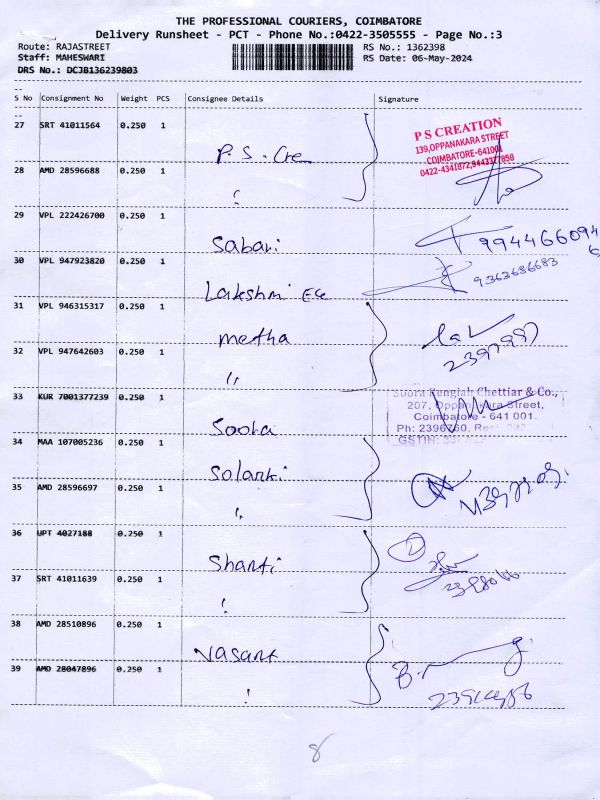 THE PROFESSIONAL COURIERS, COIMBATORE
Delivery Runsheet - PCT - Phone No.:0422-3505555 - Page No.:3
Route: RAJASTREET RS No.: 1362398
Staff: MAHESWARI RS Date: 06-May-2024
DRS No.: DCJB136239803
S No Consignment No Weight PCS Consignee Details Signature
27 SRT 41011564 0.250 1
P.S. Cre
P S CREATION
139,OPPANAKARA STREET
COIMBATORE-641001
28 AMD 28596688 0.250 1
"
29 VPL 222426700 0.250 1
Sabari 9944660946
30 VPL 947923820 0.250 1
Lakshmi Ele 9363636683
31 VPL 946315317 0.250 1
metha
32 VPL 947642603 0.250 1
"
33 KUR 7001377239 0.250 1
Soora
Soora Rengiah Chettiar & Co.,
207, Oppanakara Street,
Coimbatore - 641 001.
Ph: 2396760,
GSTIN:
34 MAA 107005236 0.250 1
Solanki
35 AMD 28596697 0.250 1
"
36 UPT 4027188 0.250 1
Shanti 2
37 SRT 41011639 0.250 1
"
38 AMD 28510896 0.250 1
Vasant
39 AMD 28047896 0.250 1
"
8